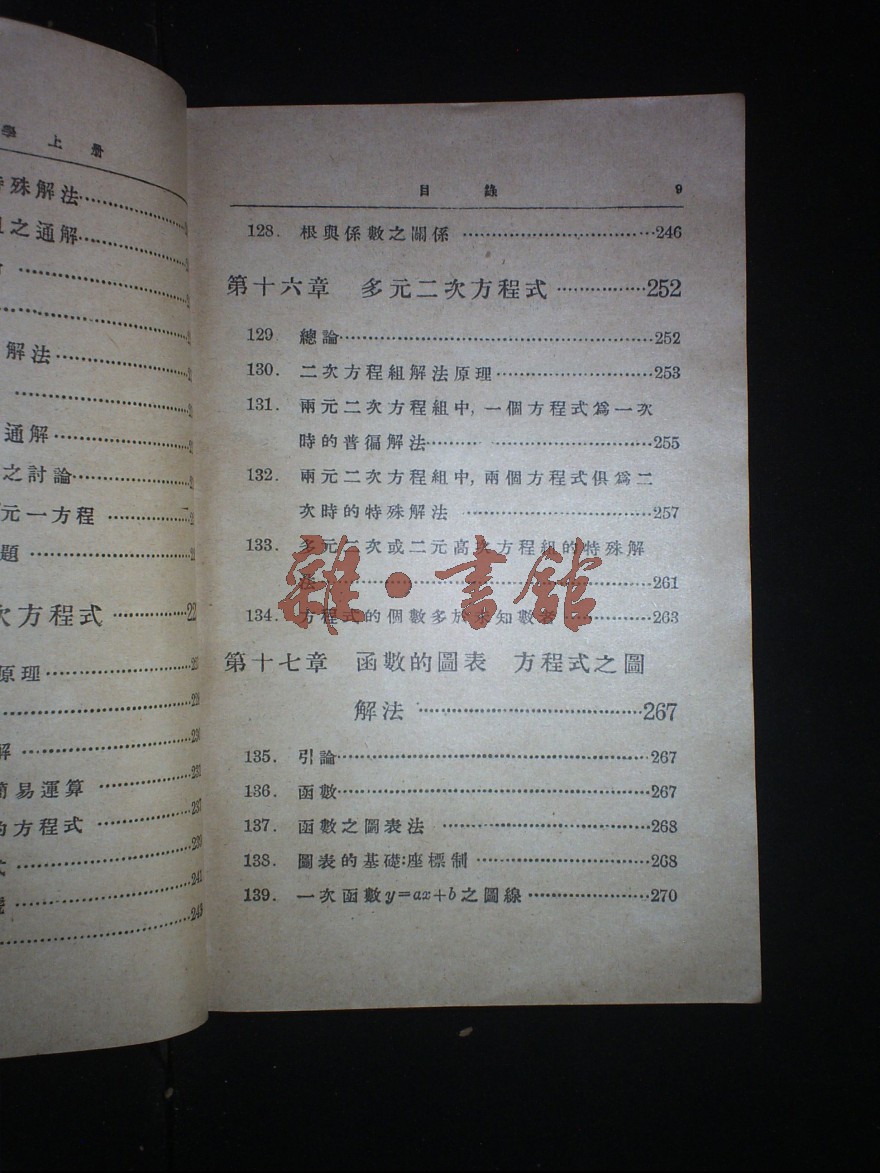 學 上 册
殊解法
之通解
解法
通解
之討論
元一方程
題
方程式 22
原理
228
解 230
易運算 232
方程式 237
239
241
243
目 錄 9
128. 根與係數之關係 246
第十六章 多元二次方程式 252
129 總論 252
130. 二次方程組解法原理 253
131. 兩元二次方程組中, 一個方程式爲一次
時的普徧解法 255
132. 兩元二次方程組中, 兩個方程式俱爲二
次時的特殊解法 257
133. 多元二次或二元高次方程組的特殊解
法 261
134. 方程式的個數多於未知數者 263
雜·書館
第十七章 函數的圖表 方程式之圖
解法 267
135. 引論 267
136. 函數 267
137. 函數之圖表法 268
138. 圖表的基礎:座標制 268
139. 一次函數y=ax+b之圖線 270